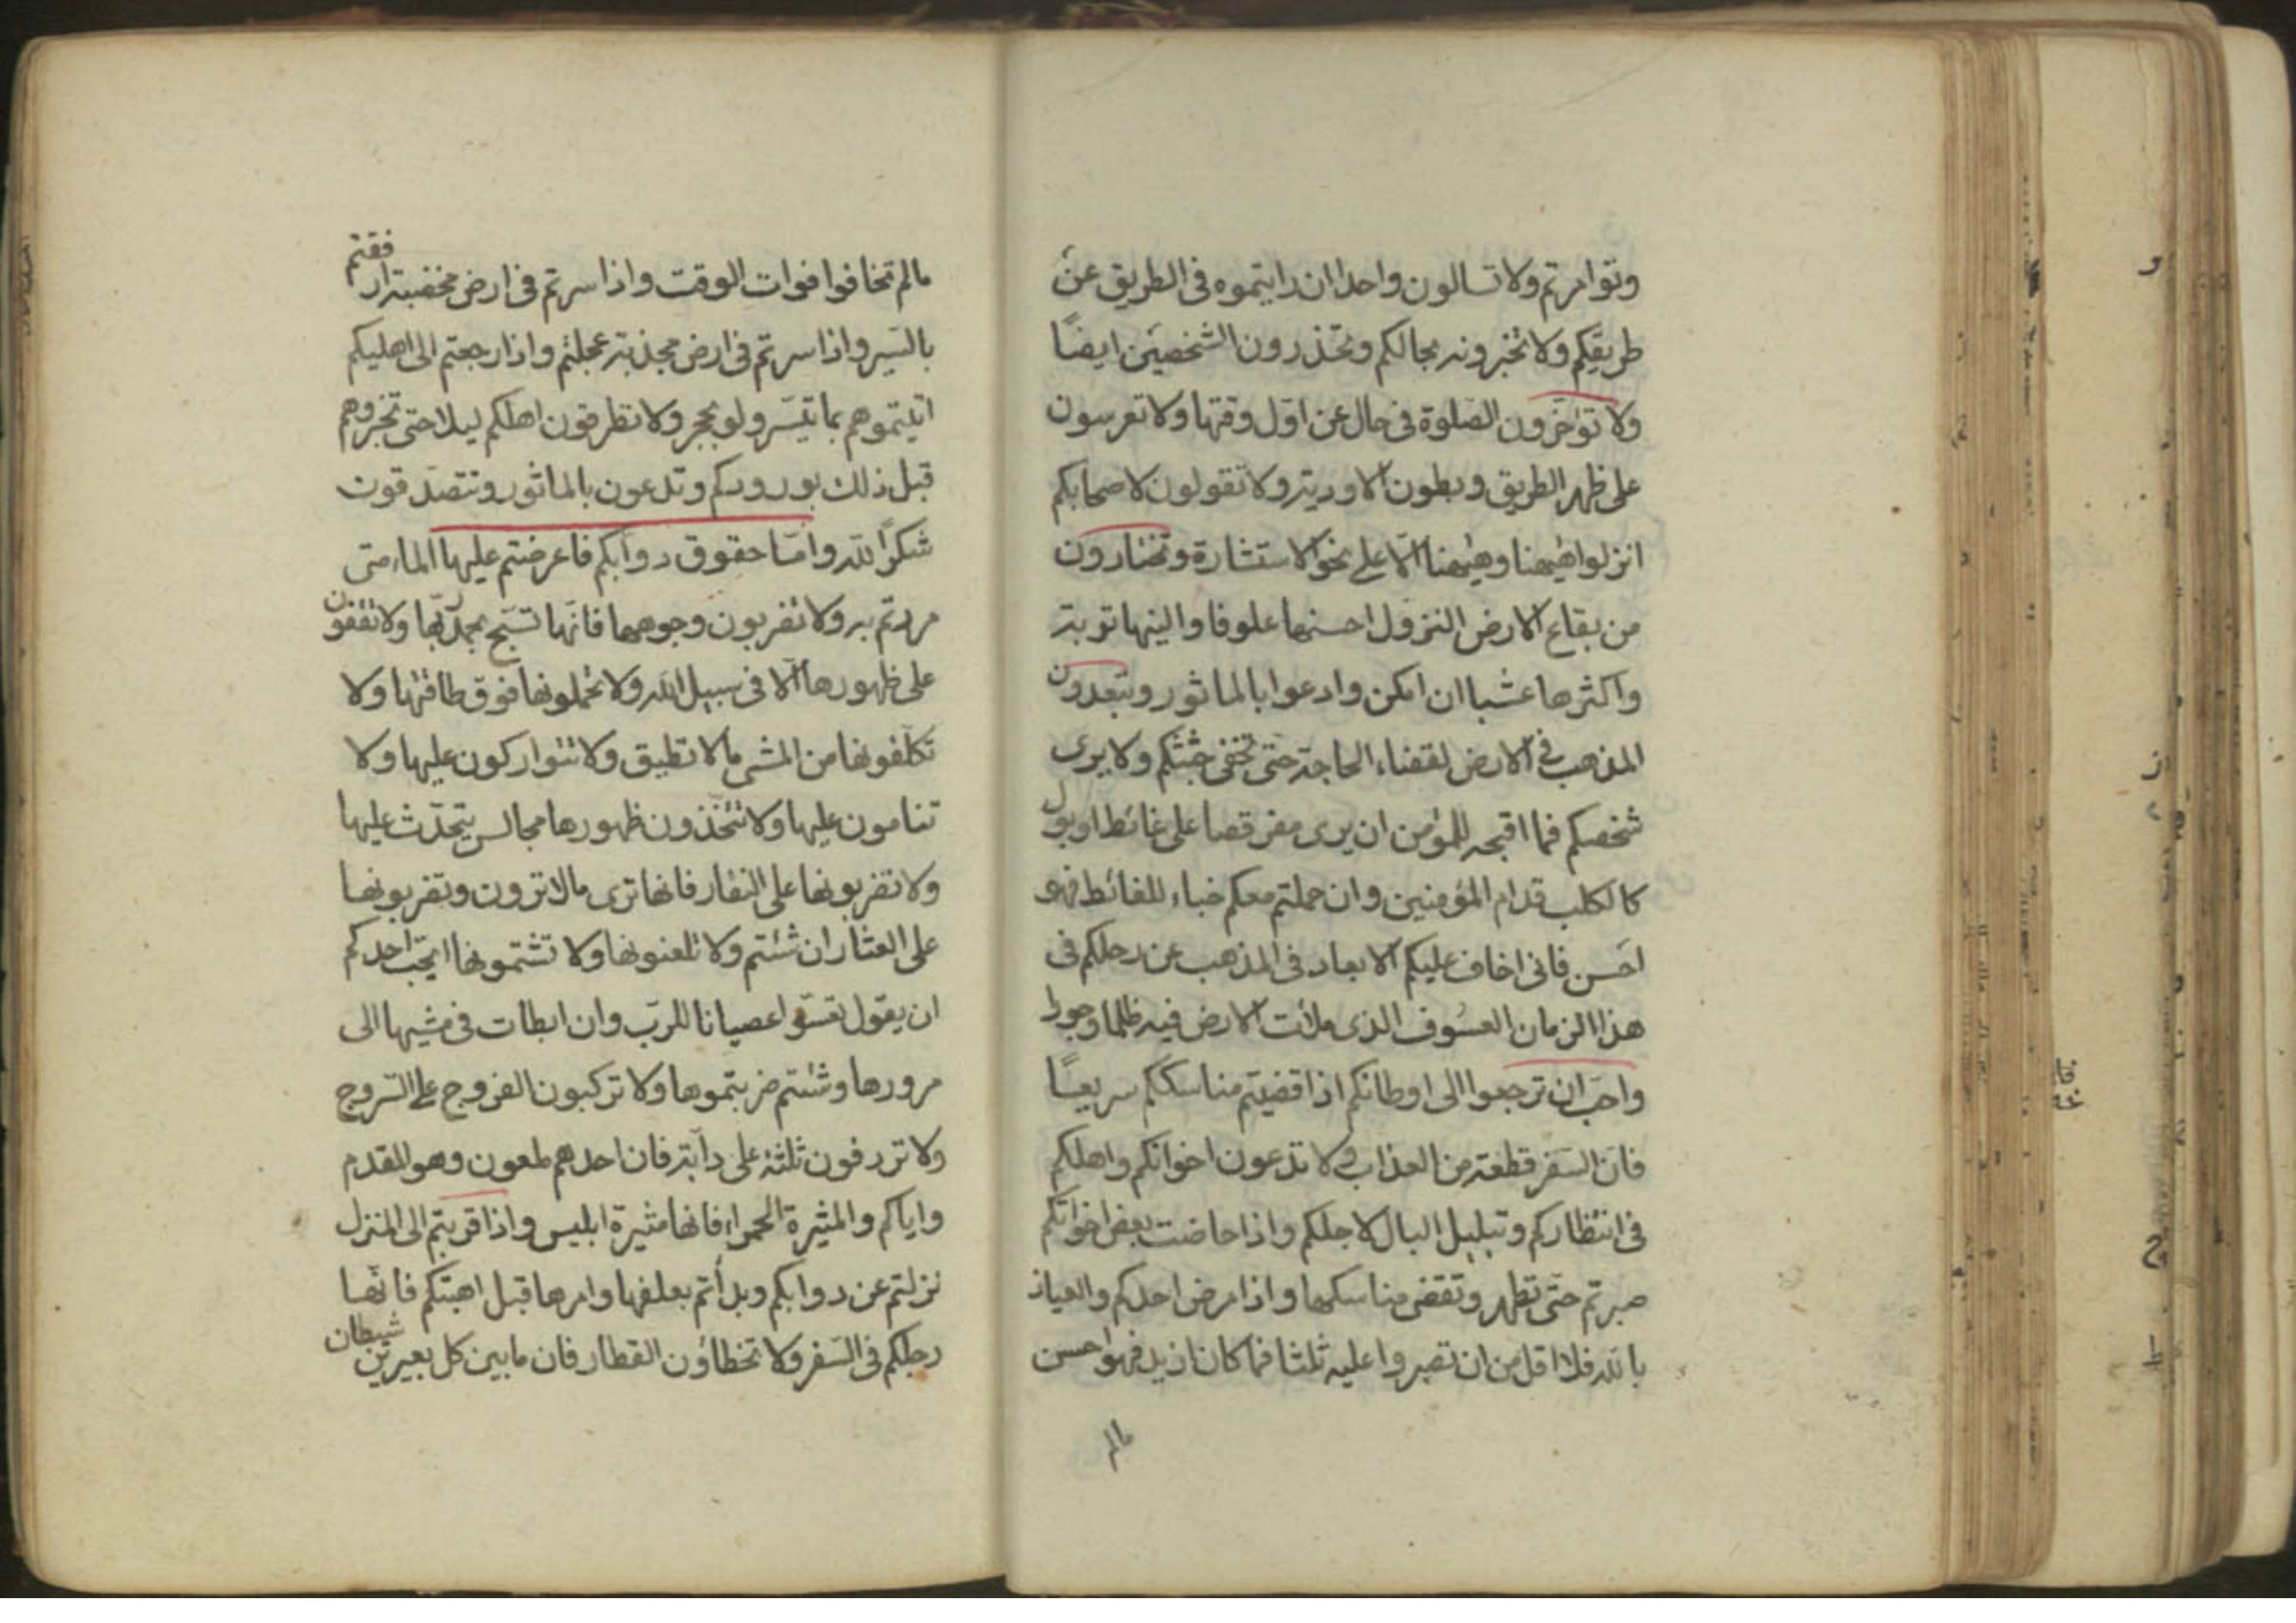 وتوامرتم ولا تسالون واحدا ان رايتموه فى الطريق عن
طريقكم ولا تخبرونه بحالكم وتحذرون الشخصين ايضًا
ولا تؤاخرون الصلوة فى حال عن اول وقتها ولا تعرسون
على ظهر الطريق وبطون الاودية ولا تقولون لاصحابكم
انزلوا هيهنا وهيهنا الا على نحو الاستشارة وتختارون
من بقاع الارض النزول احسنها علوفا والينها تربة
واكثرها عشبا ان امكن وادعوا بالماثور وتبعدون
المذهب فى الارض لقضاء الحاجة حتى تخفى جثتكم ولا يرى
شخصكم فما اقبحه للمؤمن ان يرى مقرفصا على غائط او بول
كالكلب قدام المؤمنين وان حملتم معكم خباء للغائط فهو
احسن فانى اخاف عليكم الابعاد فى المذهب عن رحلكم فى
هذا الزمان العسوف الذى ملأت الارض فيه ظلما وجورا
واحب ان ترجعوا الى اوطانكم اذا قضيتم مناسككم سريعًا
فان السفر قطعة من العذاب ولا تدعون اخوانكم واهلكم
فى انتظاركم وتبلبل البال لاجلكم واذا حاضت بعض اخواتكم
صبرتم حتى تطهر وتقضى مناسكها واذا مرض احدكم والعياذ
بالله فلا اقل من ان تصبروا عليه ثلثا فما كان ازيد فهو احسن
مالم
مالم تخافوا فوات الوقت واذا سرتم فى ارض مخصبة ارفقتم
بالسير واذا سرتم فى ارض مجذبة عجلتم واذا رجعتم الى اهليكم
اتيتموهم بما تيسر ولو بحجر ولا تطرقون اهلكم ليلا حتى تخبروهم
قبل ذلك بورودكم وتدعون بالماثور وتتصدقون
شكرًا لله واما حقوق دوابكم فاعرضتم عليها الماء متى
مررتم به ولا تضربون وجوهها فانها تسبح بحمد ربها ولا تقفون
على ظهورها الا فى سبيل الله ولا تحملونها فوق طاقتها ولا
تكلفونها من المشى ما لا تطيق ولا تتواركون عليها ولا
تنامون عليها ولا تتخذون ظهورها مجالس يتحدث عليها
ولا تضربونها على النفار فانها ترى مالا ترون وتضربونها
على العثار ان شئتم ولا تلعنونها ولا تشتمونها ايحب احدكم
ان يقول اعصيانا للرب وان ابطات فى مشيها الى
مرورها وشئتم ضربتموها ولا تركبون الفروج على السروج
ولا تردفون ثلثة على دابة فان احدهم ملعون وهو المقدم
واياكم والمثيرة الحمراء فانها مثيرة ابليس واذا قربتم الى المنزل
نزلتم عن دوابكم وبدأتم بعلفها وامرها قبل اهبتكم فانها
رحلكم فى السفر ولا تخطاؤن القطار فان مابين كل بعيرين شيطان